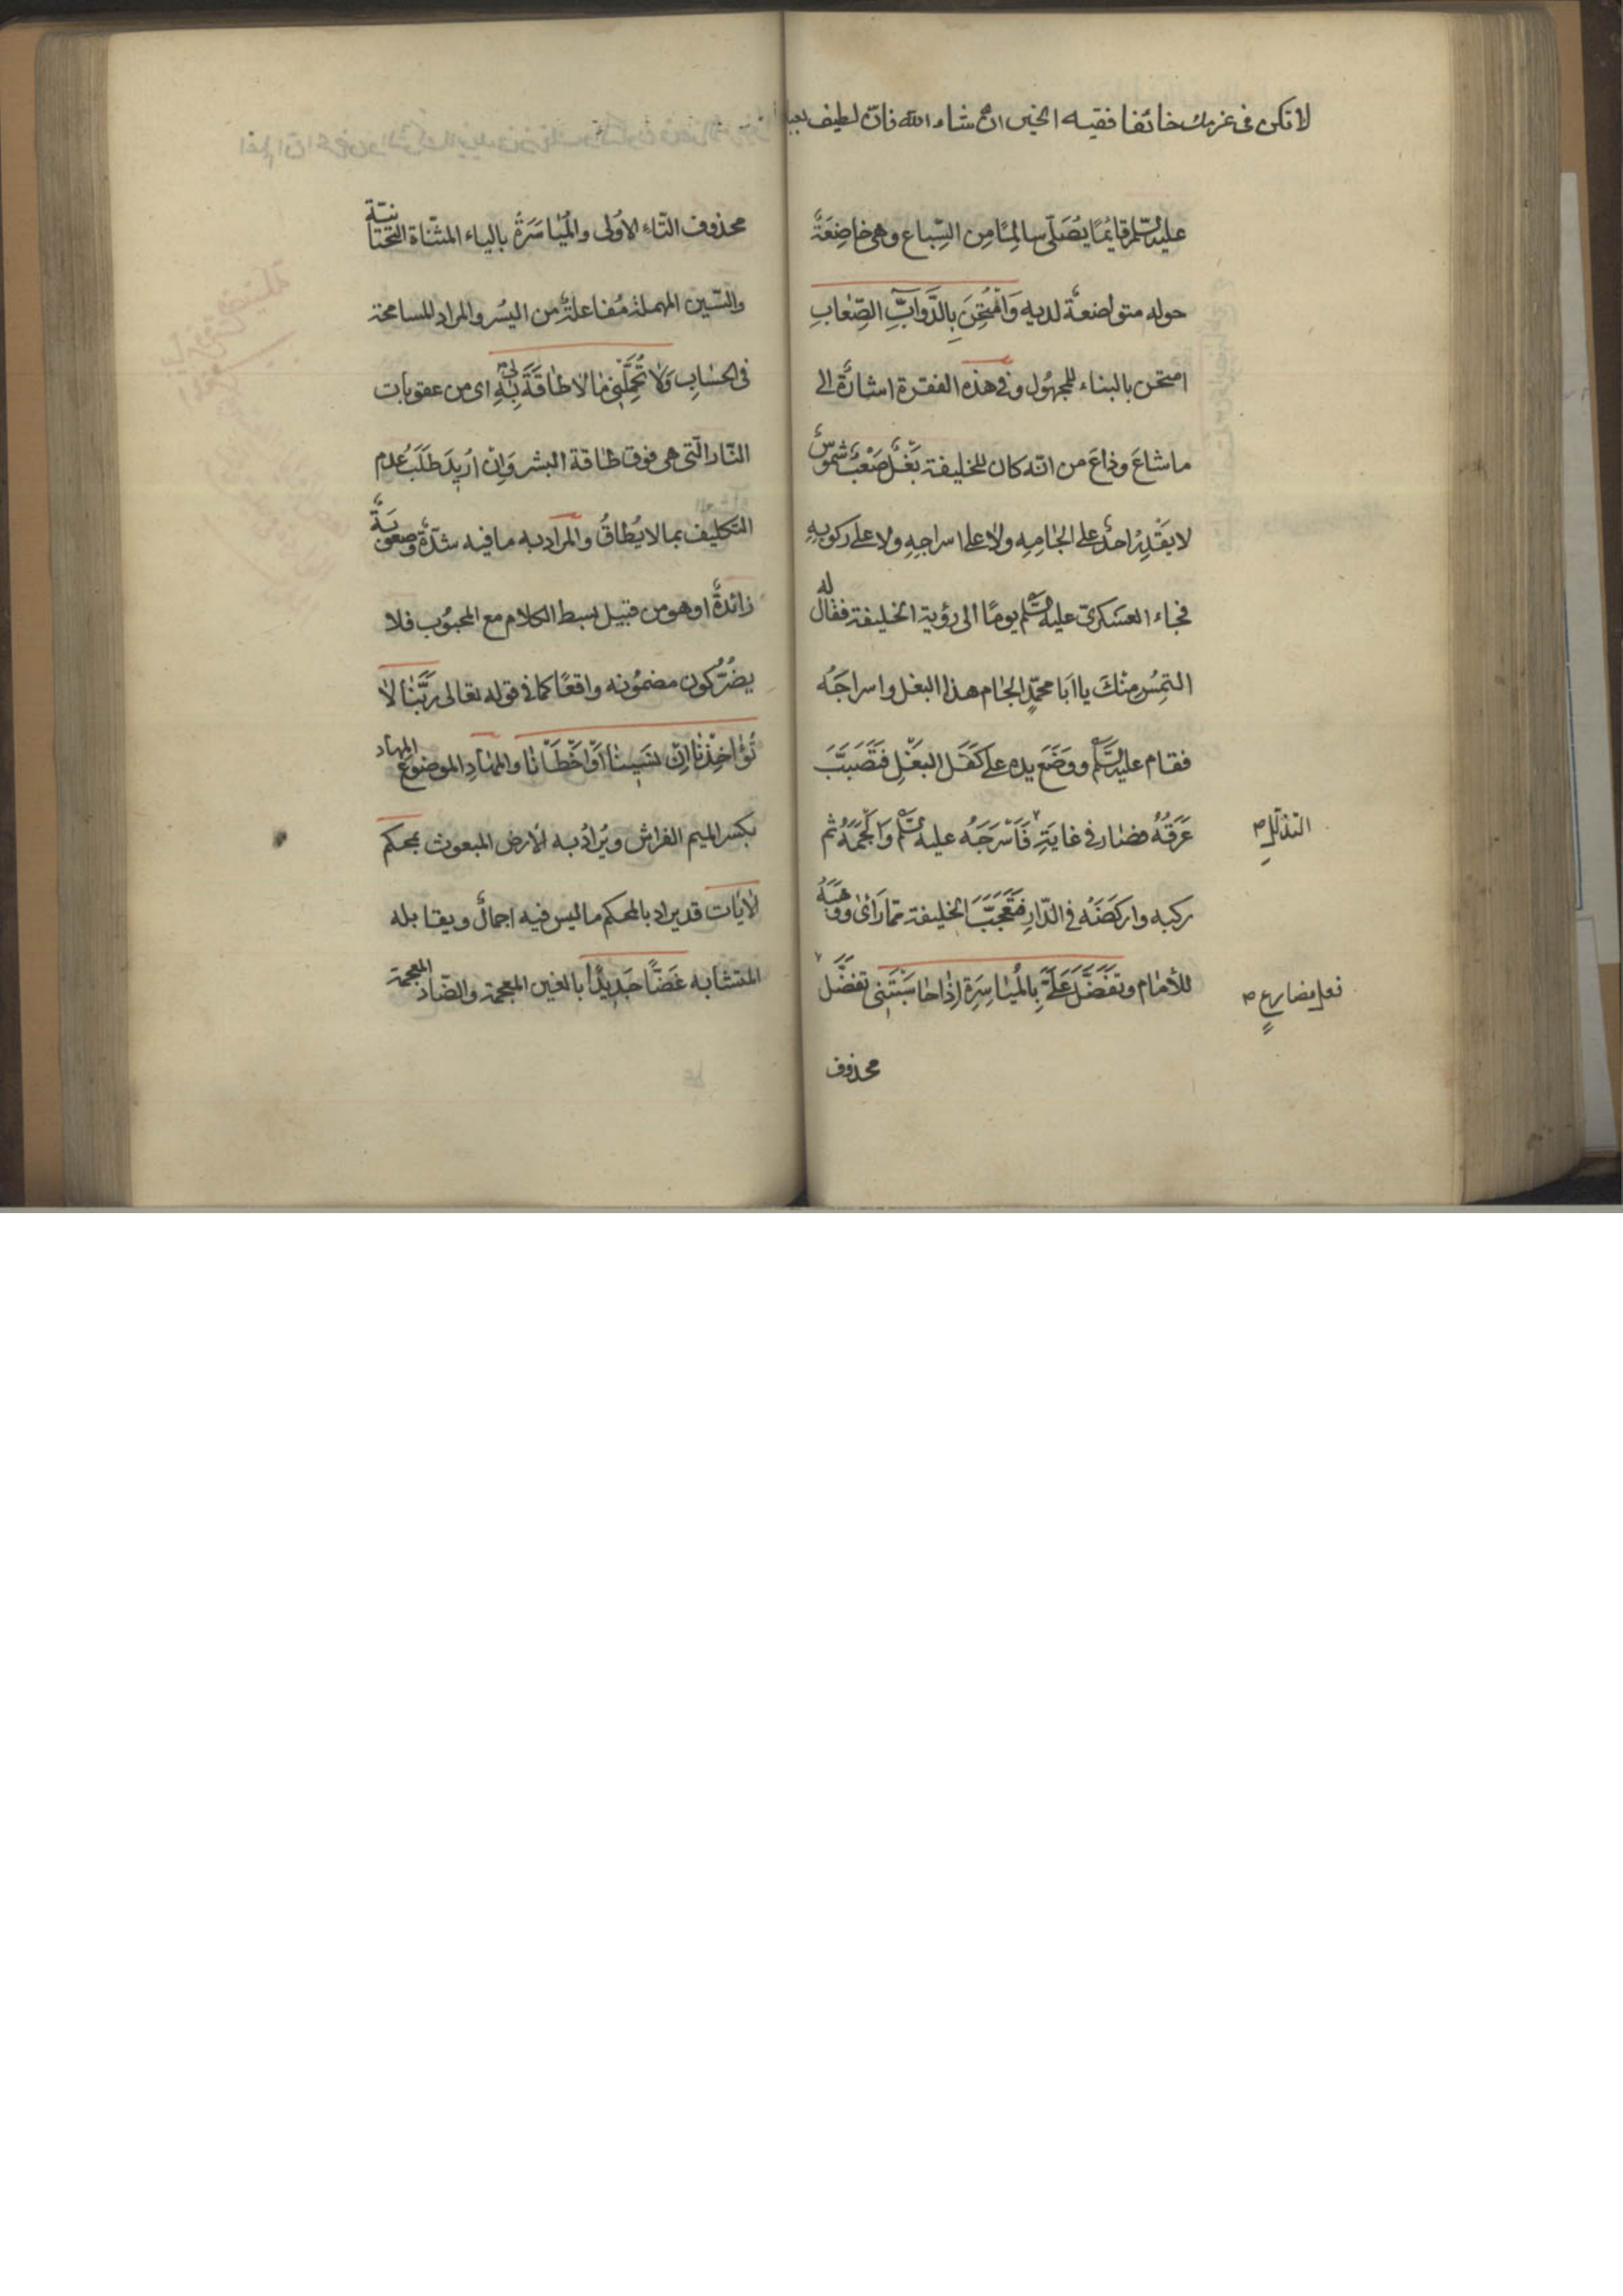 لا تكن فى عزمك خائفا ففيه الخير ان شاء الله فان لطيف
عليه السّلم قائمًا يُصَلّى سالمًا مِن السِّباع وهى خاضِعَةٌ
حوله متواضعةٌ لديه وَامْتُحِنَ بِالدَّوَابِّ الصِّعَابِ
امتحن بالبناء للمجهُول وفى هذه الفقرة اشارةٌ الى
ما شاعَ وذاعَ من انّه كان للخليفة بَغْلٌ صَعْبٌ شَمُوسٌ
لا يَقْدِرُ احدٌ على الجامِهِ ولا على اسراجِهِ ولا على ركوبِهِ
فجاء العسكرىّ عليه السّلم يومًا الى رؤية الخليفة فقال له
التمِسُ مِنْكَ يا ابَا محمّدٍ الجام هذا البغل واسراجَهُ
فقام عليه السّلم ووَضَعَ يده على كَفَلِ البَغْلِ فَتَصَبَّبَ
عَرَقُهُ فصار فى غايَةِ فَاَسْرَجَهُ عليه السّلم وَاَلْجَمَهُ ثم
التذلّلِ
ركبه واركضَهُ فى الدّار فتَعَجَّبَ الخليفة ممّا رَاٰى ووَهَبَهُ
للأمام وتَفَضَّلْ عَلَىَّ بِالْمُيَاسَرَةِ اِذَا حَاسَبْتَنى تفضّل
فعل مضارعٍ
محذوف
محذوف التّاء الاُولى والْمُيَاسَرَةُ بالياء المثنّاة التّحتانيّة
والسّين المهملة مُفاعلةٌ من اليُسْر والمراد المسامحة
فى الحساب وَلَا تُحَمِّلْنِى مَا لَا طَاقَةَ لِى بِهِ اى من عقوبات
النّار الّتى هى فوق طاقة البشر وَاِنْ اُرِيدَ طَلَبُ عدم
التكليف بما لا يُطاقُ والمراد به ما فيه شدّةٌ وصعوبَةٌ
زائدةٌ او هو من قبيل بسط الكلام مع المحبُوب فلا
يضُرُّ كون مضمُونه واقعًا كما فى قوله تعالى رَبَّنَا لَا
تُؤَاخِذْنَا اِنْ نَسِينَا اَوْ اَخْطَأْنَا والمهَادِ الموضوعِ المهاد
بكسر الميم الفراش ويُرادُ به الارض المبعوث بمحكم
الْايَات قد يراد بالمحكم ما ليس فيه اجمالٌ ويقابله
المتشابه غَضًّا جَدِيدًا بالغين المعجمة والضّاد المعجمة